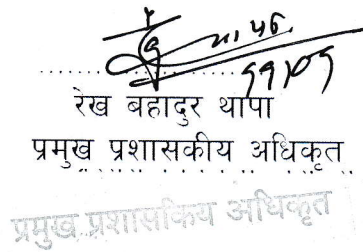 रेख बहादुर थापा
प्रमुख प्रशासकीय अधिकृत
प्रमुख प्रशासकिय अधिकृत